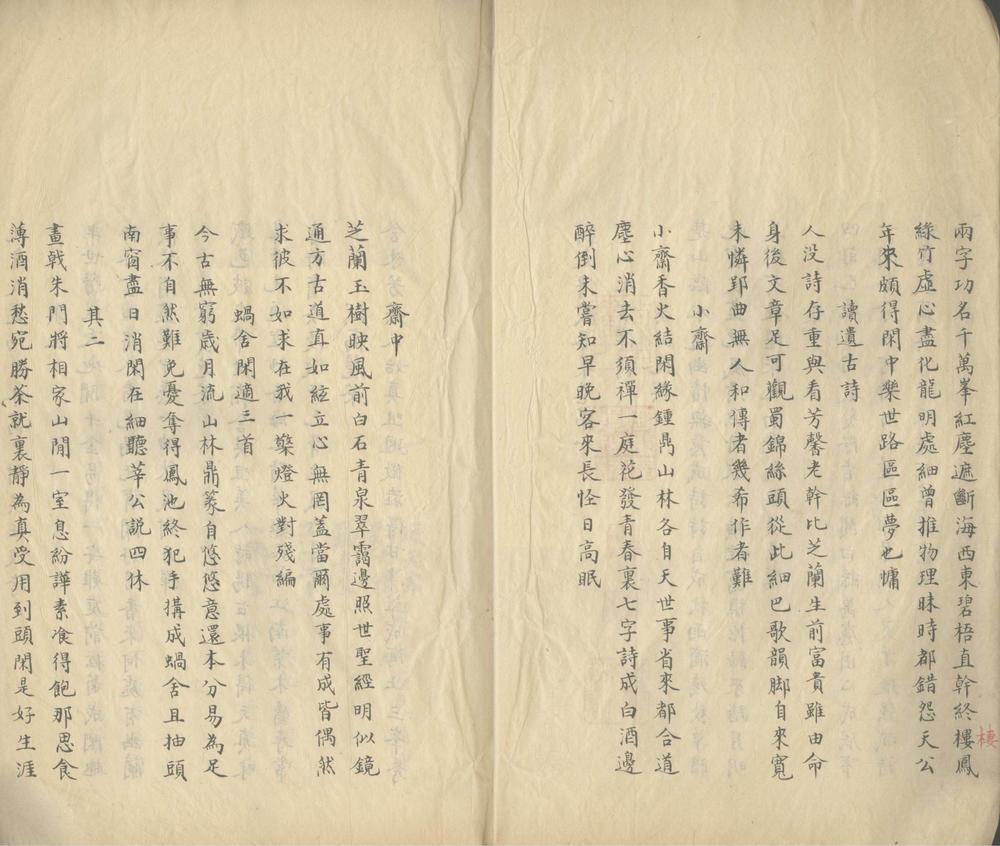 兩字功名千萬峯紅塵遮斷海西東碧梧直幹終棲鳳
棲
綠竹虛心盡化龍明處細曾推物理昧時都錯怨天公
年來頗得閑中樂世路區區夢也慵
讀遺古詩
人没詩存重與看芳馨老幹比芝蘭生前富貴雖由命
身後文章足可觀蜀錦絲頭從此細巴歌韻脚自來寬
未憐郢曲無人和得者幾希作者難
小齋
小齋香火結閑緣鍾鼎山林各自天世事省來都合道
塵心消去不須禪一庭花發青春裏七字詩成白酒邊
醉倒未嘗知早晚客來長怪日高眠
齋中
芝蘭玉樹映風前白石青泉翠靄邊照世聖經明似鏡
通方古道直如絃立心無罔盖當爾處事有成皆偶然
求彼不如求在我一檠燈火對殘編
蝸舍閑適三首
今古無窮歲月流山林鼎篆自悠悠意還本分易為足
事不自然難免憂奪得鳳池終犯手搆成蝸舍且抽頭
南窗盡日消閑在細聽莘公説四休
其二
畫戟朱門將相家山間一室息紛譁素飡得飽那思食
薄酒消愁宛勝茶就裏靜為真受用到頭閑是好生涯